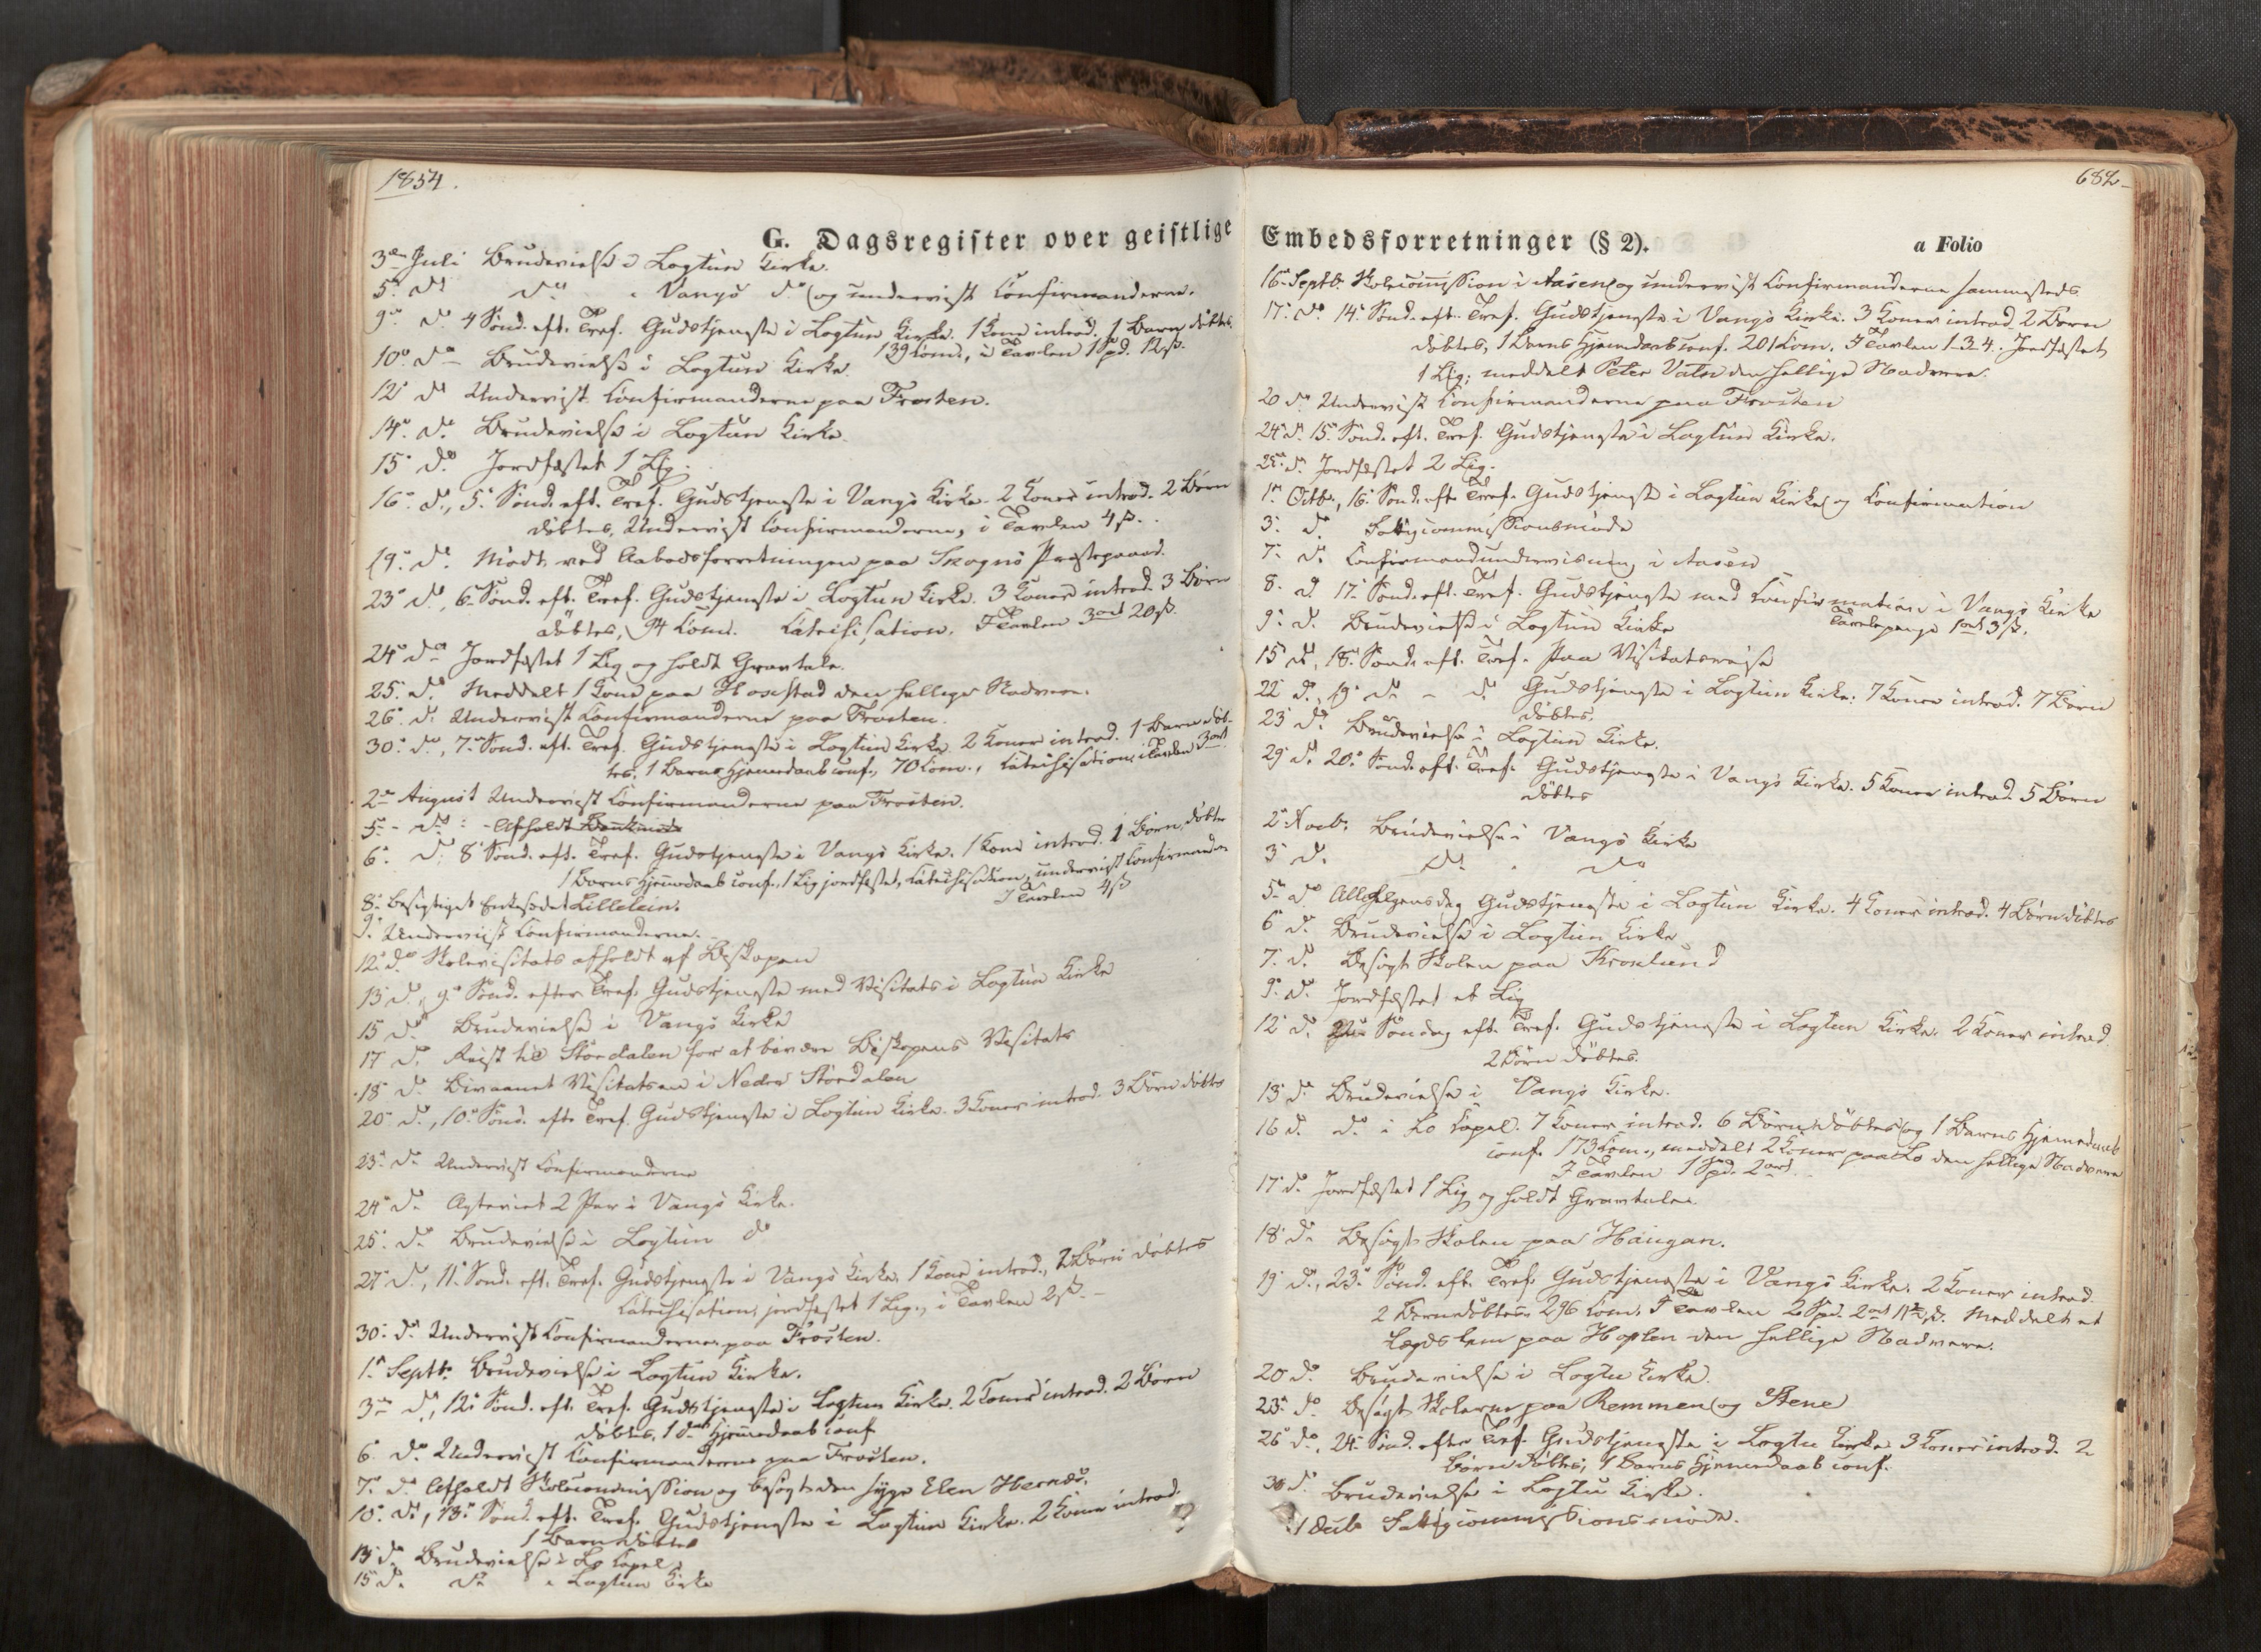 1854.
G. Dagsregister over geistlige
3die Juli Brudevielse i Logtun Kirke.
5te do do i Vangs do og underviist Confirmanderne.
9de do 4 Sønd. eft. Tref. Gudstjeneste i Logtun Kirke. 1 Kone introd. 1 Barn døbtes.
139 Com., i Tavlen 1 Spd. 12 ß.
10de do Brudevielse i Logtun Kirke.
12 do Underviist Confirmanderne paa Frosten.
14de do Brudevielse i Logtun Kirke.
15 do Jordfæstet 1 Lig.
16de do, 5te Sønd. eft. Tref. Gudstjeneste i Vangs Kirke. 2 Koner introd. 2 Børn
døbtes, Underviist Confirmanderne, i Tavlen 4 ß.
19de do Mødt ved Aabodsforretningen paa Skogns Præstegaard.
23de do, 6te Sønd. eft. Tref. Gudstjeneste i Logtun Kirke. 3 Koner introd. 3 Børn
døbtes, 74 Com. Catechisation. I Tavlen 3 ort 20 ß.
24de do Jordfæstet 1 Lig og holdt Gravtale.
25 do Meddelt 1 Kone paa Hoxstad den hellige Nadvere.
26 do Underviist Confirmanderne paa Frosten.
30te do, 7de Sønd. eft. Tref. Gudstjeneste i Logtun Kirke 2 Koner introd. 1 Barn døb-
tes, 1 Barns Hjemmedaab conf., 70 Com., Catechisation, i Tavlen 3 ort
2den August Underviist Confirmanderne paa Frosten.
5te do Afholdt
6te do 8 Sønd. eft. Tref. Gudstjeneste i Vangs Kirke. 1 Kone introd. 1 Børn døbtes
1 Barns Hjemmedaab conf., 1 Lig jordfæstet, Catechisation, underviist Confirmander
I Tavlen 4 ß
8de Besigtiget Enkesædet Lilleløien.
9de Underviist Confirmanderne.
12te do Skolevisitats afholdt af Biskopen
13 do, 9de Sønd. efter Tref. Gudstjeneste med Visitats i Logtun Kirke
15 do Brudevielse i Vangs Kirke
17 do Reist til Størdalen for at bivære Biskopens Visitats
18 do Bivaanet Visitatsen i Nedre Størdalen
20 do, 10de Sønd. eft. Tref. Gudstjeneste i Logtun Kirke. 3 Koner introd. 3 Børn døbtes
23de do Underviist Confirmanderne
24de do Egteviet 2 Par i Vangs Kirke.
25 do Brudevielse i Logtun do
27de do, 11te Sønd. eft. Tref. Gudstjeneste i Vangs Kirke. 1 Kone introd., 2 Børn døbtes
Catechisation, jordfæstet 1 Lig., i Tavlen 2 ß.
30te do Underviist Confirmanderne paa Frosten.
1te Septb. Brudevielse i Logtun Kirke.
3die do, 12te Sønd. eft. Tref. Gudstjeneste i Logtun Kirke. 2 Koner introd. 2 Børn
døbtes, 1 do Hjemmedaab conf
6 do Underviist Confirmanderne paa Frosten.
7de do Afholdt Skolecommission og besøgt den syge Elen Hernæs.
10de do, 13de Sønd. eft. Tref. Gudstjeneste i Logtun Kirke. 2 Koner introd.
1 Barn døbtes
13 do Brudevielse i Lo Capel.
15 do do i Logtun Kirke
682
Embedsforretninger (§ 2).
a Folio
16de Septb. Skolecommission i Aasen og underviist Confirmanderne sammesteds.
17de do 14de Sønd. eft. Tref. Gudstjeneste i Vangs Kirke. 3 Koner introd. 2 Børn
døbtes, 1 Barns Hjemmedaab conf. 201 Com. I Tavlen 1-3-4. Jordfæstet
1 Lig; meddelt Peter Vatn den hellige Nadvere.
20 do Underviist Confirmanderne paa Frosten
24de do 15de Sønd. eft. Tref. Gudstjeneste i Logtun Kirke.
25de do Jordfæstet 2 Lig.
1te Octb., 16de Sønd. eft. Tref. Gudstjeneste i Logtun Kirke og Confirmation
3 do Fattigcommissionsmøde
7de do Confirmandundervisning i Aasen
8 do 17de Sønd. eft. Tref. Gudstjeneste med Confirmation i Vangs Kirke
Tavlepenge 1 ort 3 ß.
9de do Brudevielse i Logtun Kirke
15 do, 18de Sønd. eft. Tref. Paa Visitatsreise
22 do, 19 do - do Gudstjeneste i Logtun Kirke. 7 Koner introd. 7 Børn
døbtes.
23 do Brudevielse i Logtun Kirke.
29 do 20de Sønd. eft. Tref. Gudstjeneste i Vangs Kirke. 5 Koner introd. 5 Børn
døbtes
2den Novb. Brudevielse i Vangs Kirke
3 do do do
5te do Allehelgensdag Gudstjeneste i Logtun Kirke. 4 Koner introd. 4 Børn døbtes
6 do Brudevielse i Logtun Kirke
7de do Besøgt Skolen paa Kroxlund
9de do Jordfæstet et Lig
12 do Søndag eft. Tref. Gudstjeneste i Logtun Kirke. 2 Koner introd.
2 Børn døbtes.
13 do Brudevielse i Vangs Kirke.
16 do do i Lo Capel. 7 Koner introd. 6 Børn døbtes og 1 Barns Hjemmedaab
conf. 173 Com., meddelt 2 Koner paa Lo den hellige Nadvere
I Tavlen 1 Spd. 2 ort
17 do Jordfæstet 1 Lig og holdt Gravtalen
18 do Besøgt Skolen paa Haugan.
19 do, 23de Sønd. eft. Tref. Gudstjeneste i Vangs Kirke. 2 Koner introd.
2 Børn døbtes 296 Com. I Tavlen 2 Spd. 2 ort 11 ß. Meddelt et
Lægdslem paa Hoplen den hellige Nadvere.
20 do Brudevielse i Logtu Kirke.
23de do Besøgt Skolerne paa Remmen og Stene
26 do, 24de Sønd. efter Tref. Gudstjeneste i Logtu Kirke 3 Koner introd. 2
Børn døbtes, 1 Barns Hjemmedaab conf.
30 do Brudevielse i Logtu Kirke.
1 Decb. Fattigcommissionsmøde.